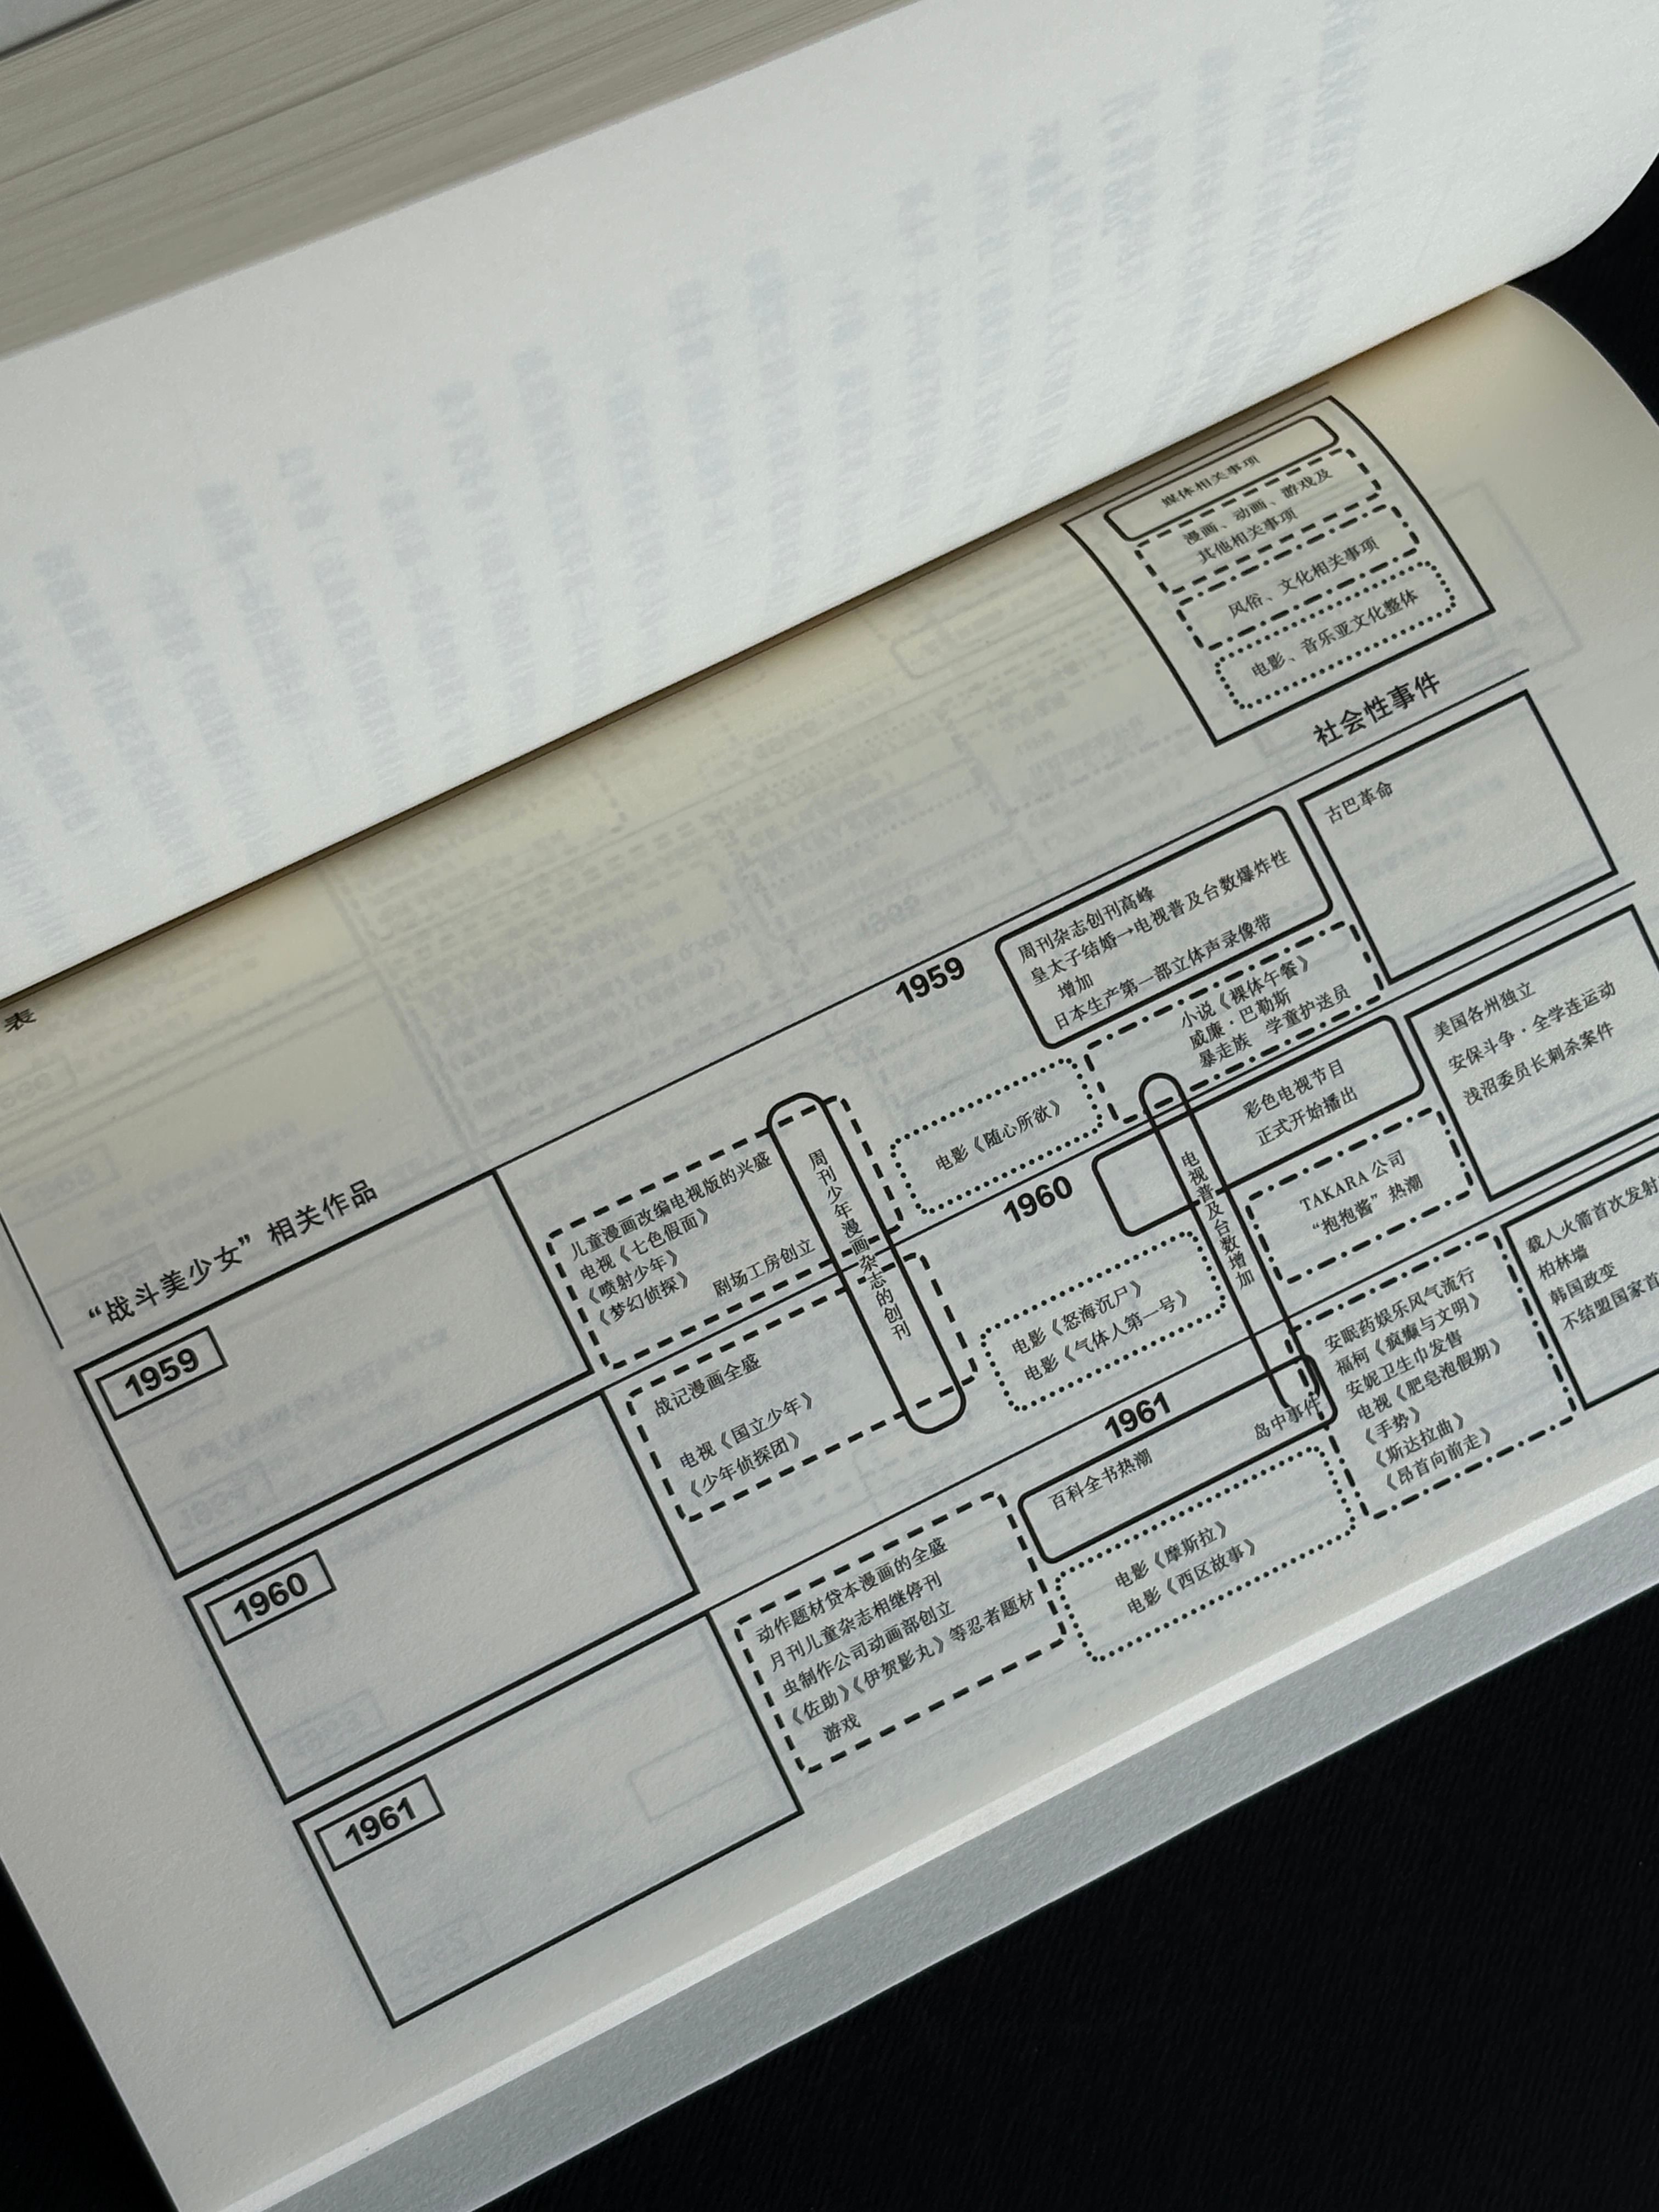 表
媒体相关事项
漫画、动画、游戏及
其他相关事项
风俗、文化相关事项
电影、音乐亚文化整体
“战斗美少女”相关作品
社会性事件
1959
1959
儿童漫画改编电视版的兴盛
电视《七色假面》
《喷射少年》
《梦幻侦探》 剧场工房创立
周刊少年漫画杂志的创刊
电影《随心所欲》
周刊杂志创刊高峰
皇太子结婚→电视普及台数爆炸性
增加
日本生产第一部立体声录像带
小说《裸体午餐》
威廉·巴勒斯
暴走族 学童护送员
古巴革命
1960
1960
战记漫画全盛
电视《国立少年》
《少年侦探团》
电影《怒海沉尸》
电影《气体人第一号》
电视普及台数增加
彩色电视节目
正式开始播出
TAKARA 公司
“抱抱酱”热潮
美国各州独立
安保斗争·全学连运动
浅沼委员长刺杀案件
1961
1961
动作题材贷本漫画的全盛
月刊儿童杂志相继停刊
虫制作公司动画部创立
《佐助》《伊贺影丸》等忍者题材
游戏
百科全书热潮
岛中事件
电影《摩斯拉》
电影《西区故事》
安眠药娱乐风气流行
福柯《疯癫与文明》
安妮卫生巾发售
电视《肥皂泡假期》
《手势》
《斯达拉曲》
《昂首向前走》
载人火箭首次发射
柏林墙
韩国政变
不结盟国家首